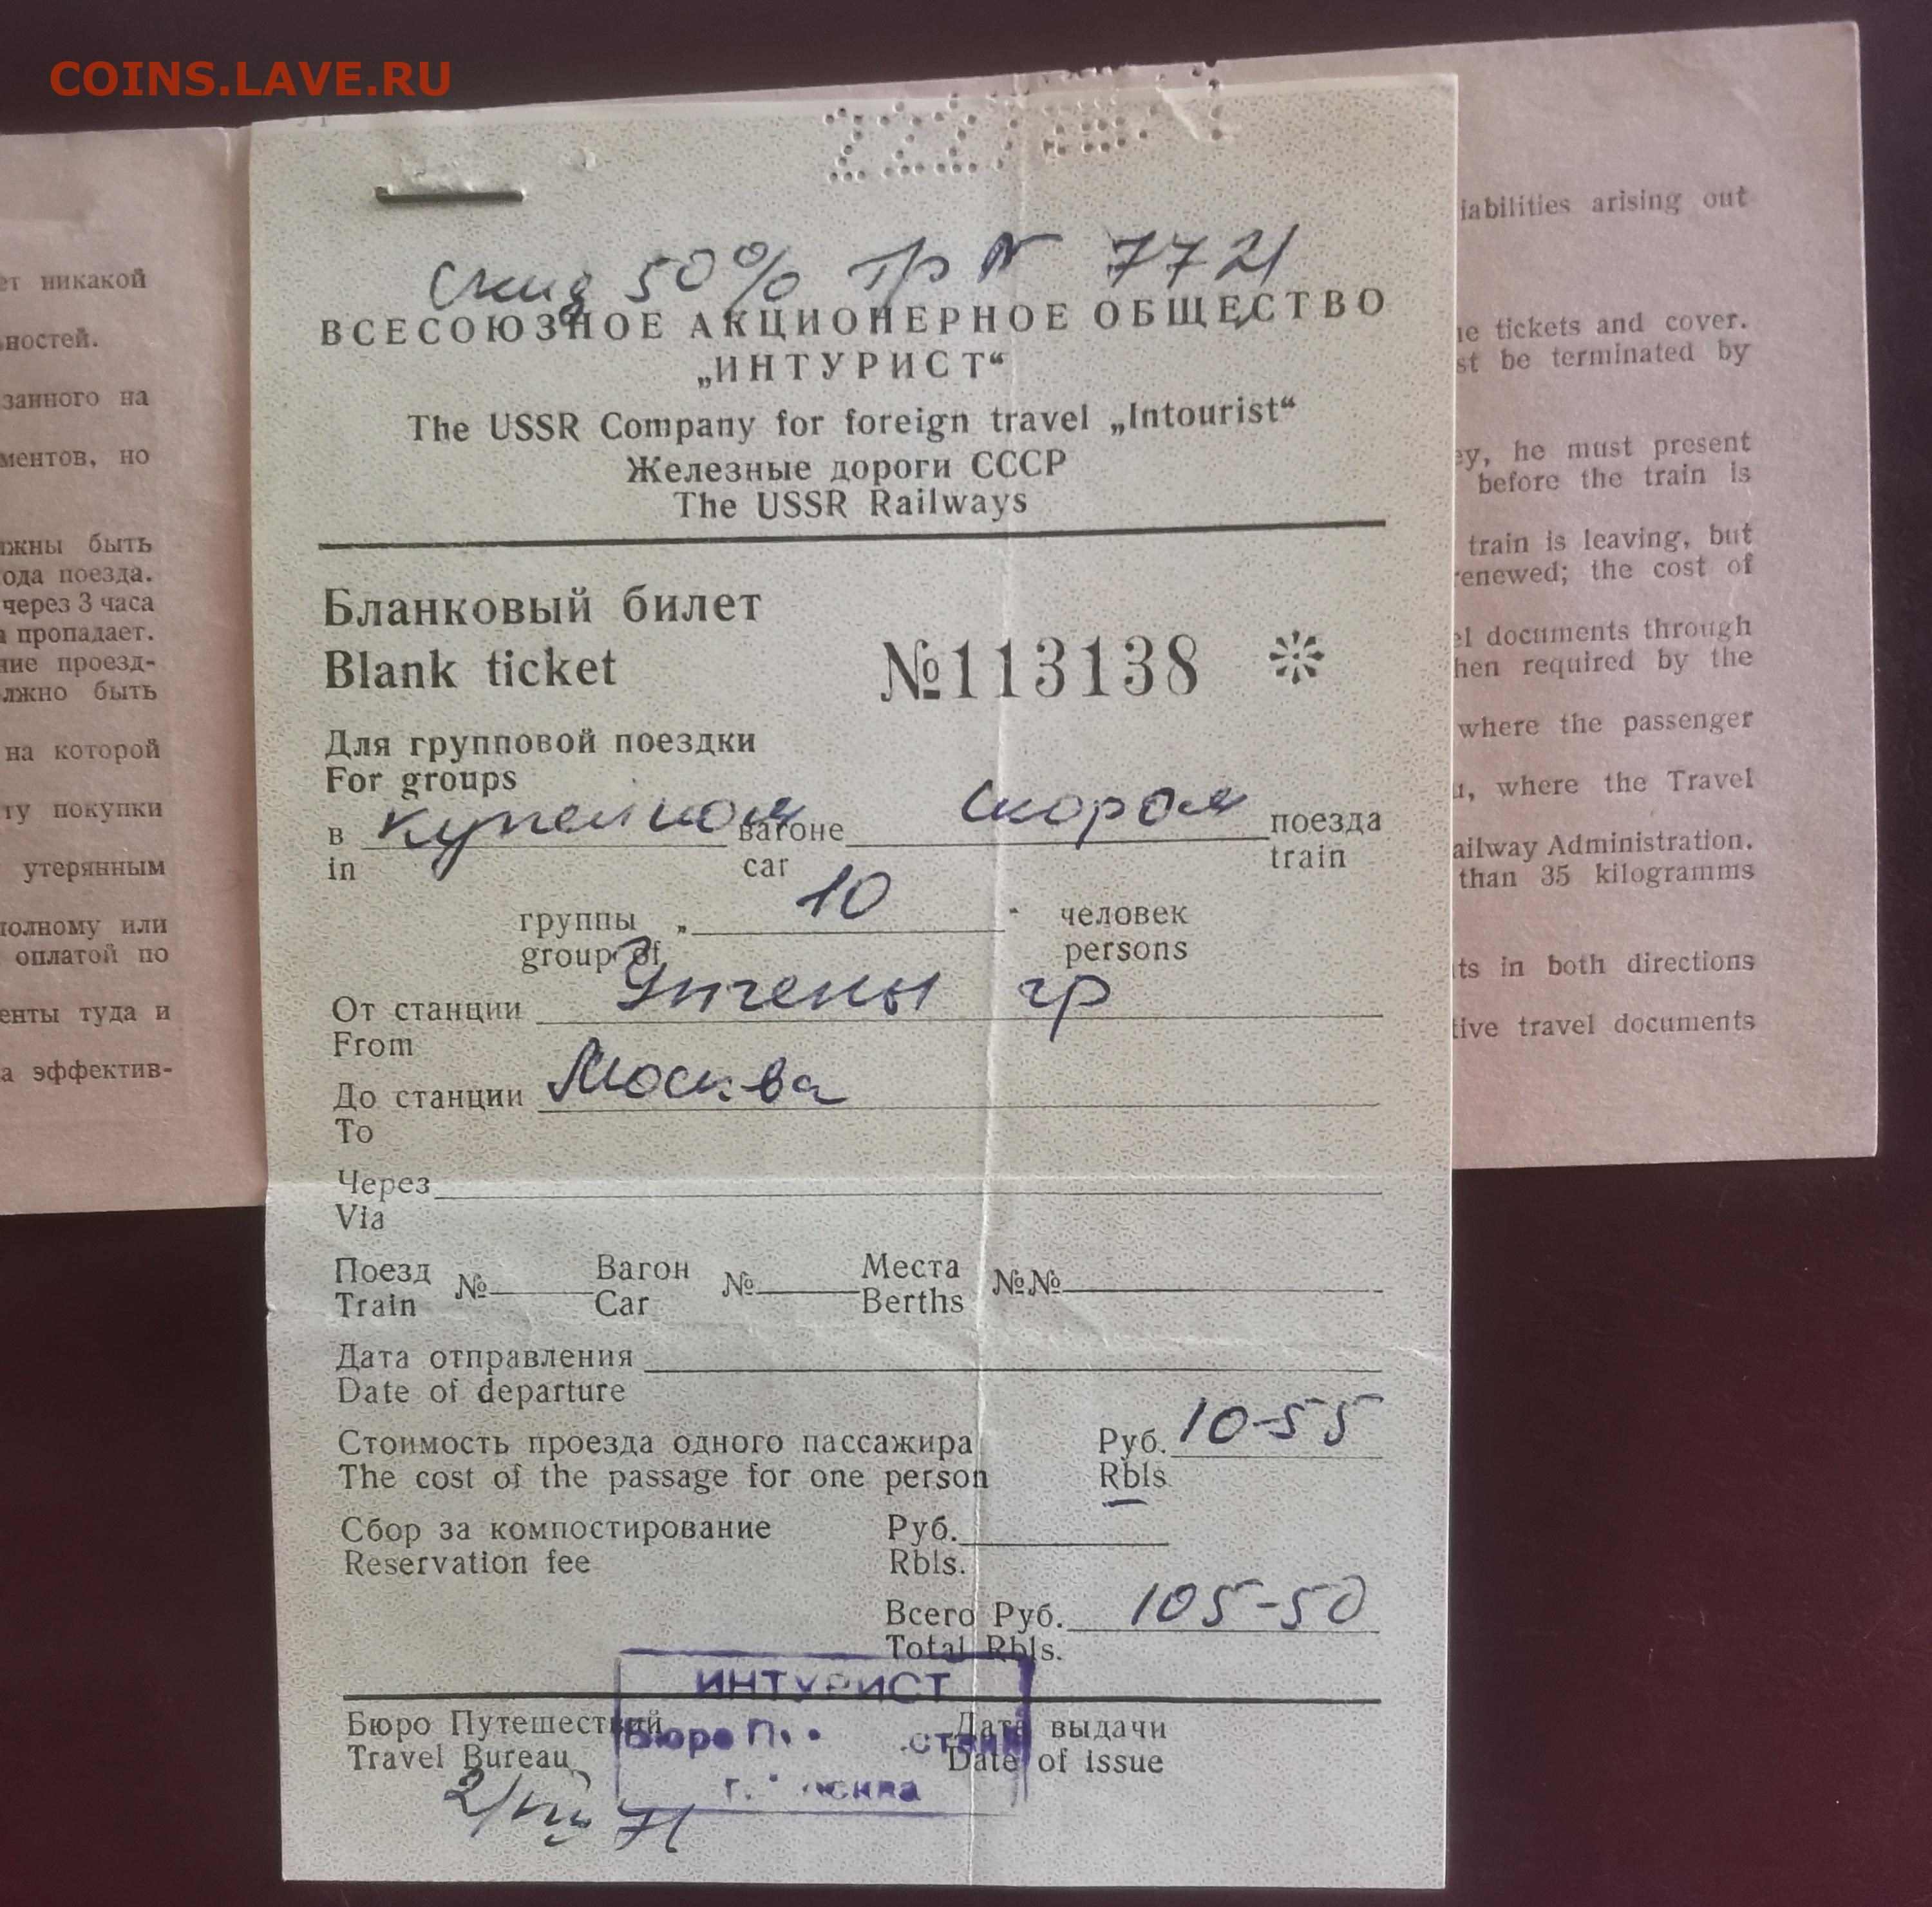 COINS.LAVE.RU
Скид 50% Тр № 7721
ВСЕСОЮЗНОЕ АКЦИОНЕРНОЕ ОБЩЕСТВО
„ИНТУРИСТ“
The USSR Company for foreign travel „Intourist“
Железные дороги СССР
The USSR Railways
Бланковый билет
Blank ticket №113138
Для групповой поездки
For groups
в купейном вагоне скором поезда
in car train
группы „ 10 " человек
group of persons
От станции Унгены гр
From
До станции Москва
To
Через
Via
Поезд № Вагон № Места №№
Train Car Berths
Дата отправления
Date of departure
Стоимость проезда одного пассажира Руб. 10-55
The cost of the passage for one person Rbls
Сбор за компостирование Руб.
Reservation fee Rbls.
Всего Руб. 105-50
Total Rbls.
ИНТУРИСТ
Бюро Путешествий Дата выдачи
Travel Bureau Date of issue
Бюро
г.
71
никакой
ностей.
занного на
ментов, но
жны быть
ода поезда.
через 3 часа
пропадает.
ние проезд-
лжно быть
на которой
ту покупки
утерянным
полному или
оплатой по
енты туда и
а эффектив-
iabilities arising out
tickets and cover.
st be terminated by
ey, he must present
before the train is
train is leaving, but
renewed; the cost of
documents through
hen required by the
where the passenger
where the Travel
ailway Administration.
than 35 kilogramms
ts in both directions
tive travel documents